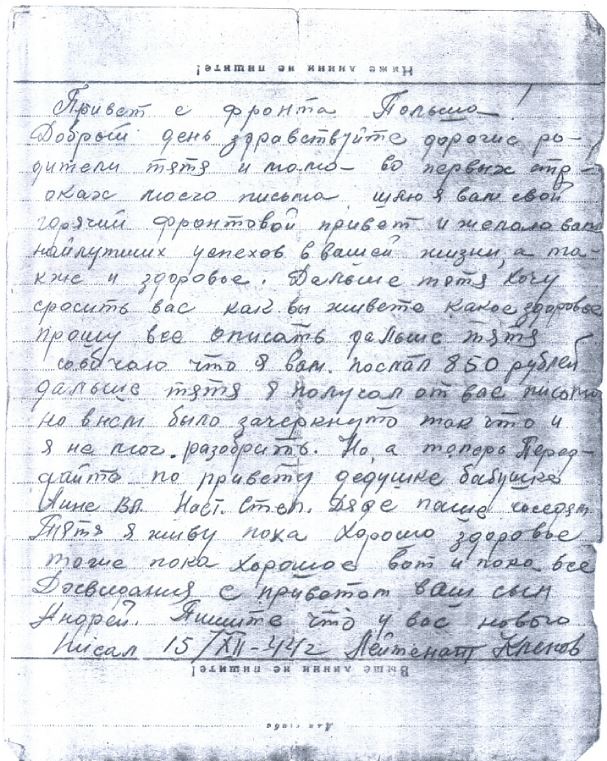 Ниже линии не пишите!
Привет с фронта Польша!
Добрый день здравствуйте дорогие ро-
дители тятя и мама во первых стр-
оках моего письма шлю я вам свой
горячий фронтовой привет и желаю вам
найлутших успехов в вашей жизни, а та-
кже и здоровье. Дальше тятя, хочу
спросить вас как вы живете какое здоровье
прошу все описать дальше тятя
сообчаю что я вам. послал 850 рублей
дальше тятя я получал от вас письмо
но в нем было зачеркнуто так что и
я не мог. разобрить. Но, а теперь Перед-
дайте по привету дедушке бабушке
Анне Вл. Наст. Степ. Дяде паше соседям
Тятя я живу пока хорошо здоровье
тоже пока хорошое вот и пока все
Досвидания с приветом ваш сын
Андрей. Пишите что у вас нового
Писал 15/XII-44г Лейтенант
Выше линии не пишите!